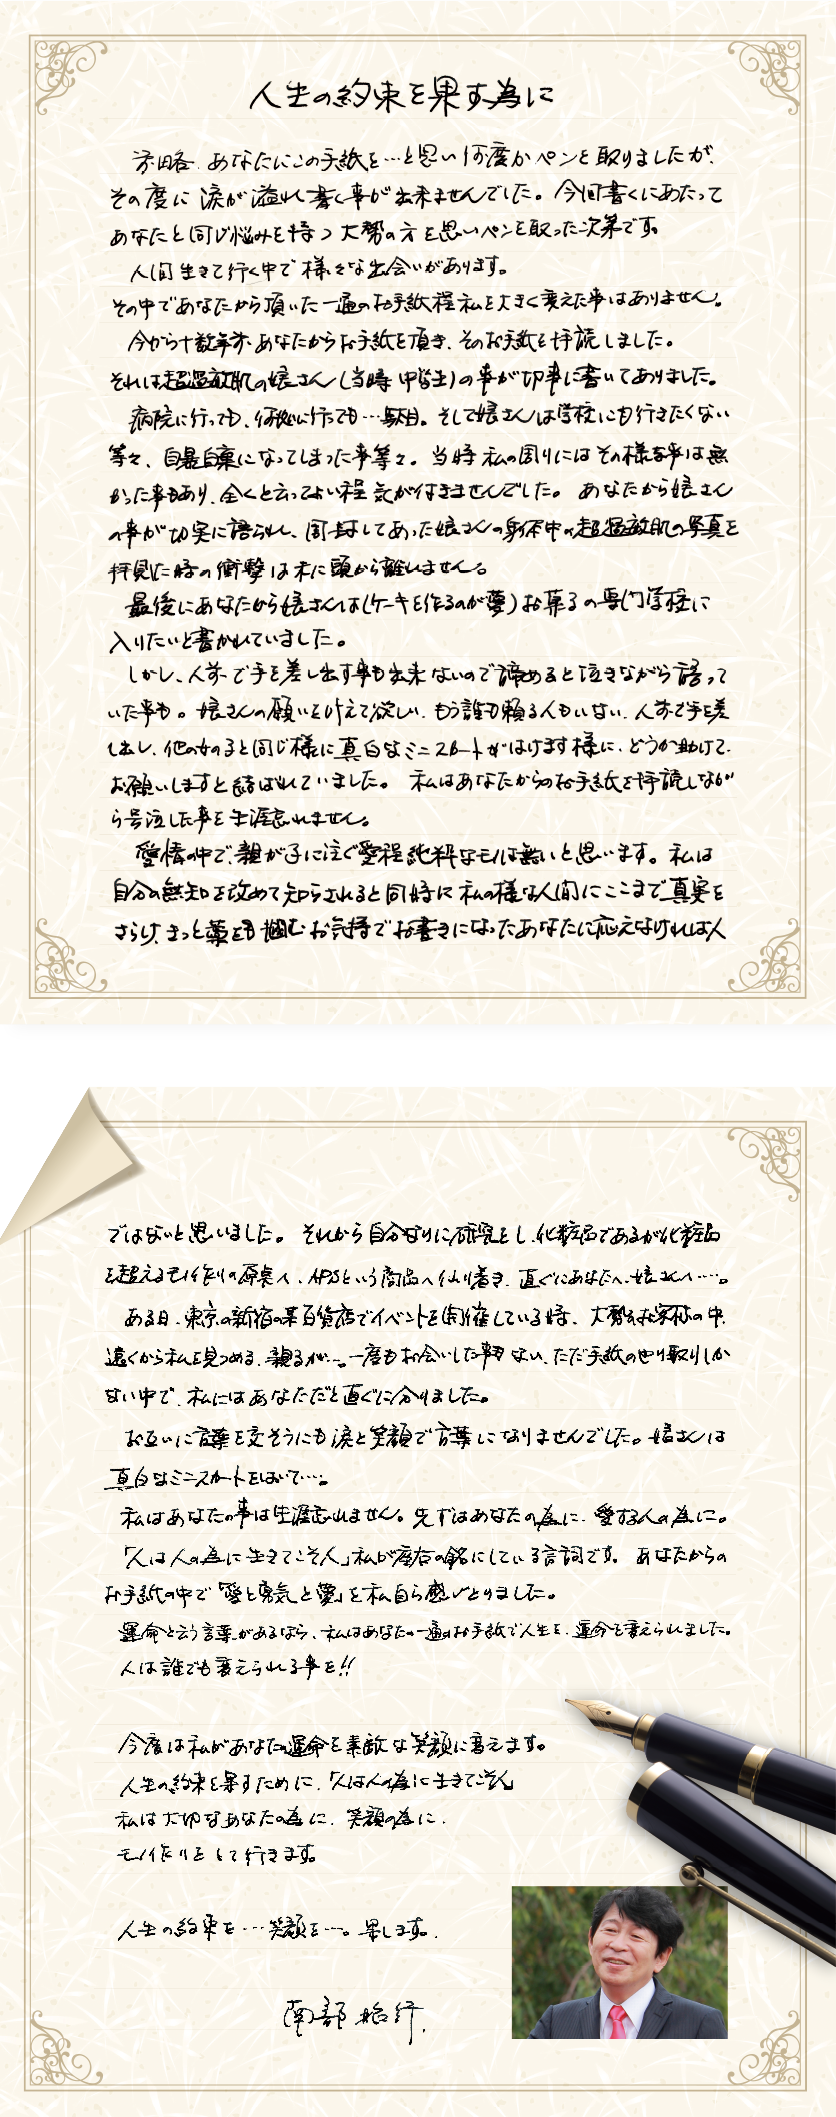 人生の約束を果す為に
前略、あなたにこの手紙を…と思い何度かペンを取りましたが、
その度に涙が溢れ書く事が出来ませんでした。今回書くにあたって
あなたと同じ悩みを持つ大勢の方を思いペンを取った次第です。
人間生きて行く中で様々な出会いがあります。
その中であなたから頂いた一通のお手紙程私を大きく変えた事はありません。
今から十数年前、あなたからお手紙を頂き、そのお手紙を拝読しました。
それは超過敏肌の娘さん(当時中学生)の事が切実に書いてありました。
病院に行っても、何処に行っても…駄目。そして娘さんは学校にも行きたくない
等々、自暴自棄になってしまった事等々。当時私の周りにはその様な事は無
かった事もあり、全くと云ってよい程気が付きませんでした。あなたから娘さん
の事が切実に語られ、同封してあった娘さんの身体中の超過敏肌の写真を
拝見した時の衝撃は未に頭から離れません。
最後にあなたから娘さんは(ケーキを作るのが夢)お菓子の専門学校に
入りたいと書かれていました。
しかし、人前で手を差し出す事も出来ないので諦めると泣きながら語って
いた事も。娘さんの願いを叶えて欲しい、もう誰も頼る人もいない、人前で手を差
し出し、他の女の子と同じ様に真白なミニスカートがはけます様に、どうか助けて、
お願いしますと結ばれていました。私はあなたからのお手紙を拝読しなが
ら号泣した事を生涯忘れません。
愛情の中で、親が子に注ぐ愛程純粋なモノは無いと思います。私は
自分の無知を改めて知らされると同時に私の様な人間にここまで真実を
さらけ、きっと藁をも掴むお気持でお書きになったあなたに応えなければ人
ではないと思いました。それから自分なりに研究をし、化粧品であるが化粧品
を超えるモノ作りの原点へ、APSという商品へ仙り着き、直ぐにあなたへ、娘さんへ……。
ある日、東京の新宿の某百貨店でイベントを開催している時、大勢のお客様の中、
遠くから私を見つめる、親子が…。一度もお会いした事もない、ただ手紙のやり取りしか
ない中で、私にはあなただと直ぐに分りました。
お互いに言葉を交そうにも涙と笑顔で言葉になりませんでした。娘さんは
真白なミニスカートをはいて…。
私はあなたの事は生涯忘れません。先ずはあなたの為に、愛する人の為に。
「人は人の為に生きてこそ人」私が座右の銘にしている言詞です。あなたからの
お手紙の中で「愛と勇気と夢」を私自ら感じとりました。
運命と云う言葉があるなら、私はあなたの一通のお手紙で人生を、運命を変えられました。
人は誰でも変えられる事を!!
今度は私があなたの運命を素敵な笑顔に変えます。
人生の約束を果すために、「人は人の為に生きてこそ人」
私は大切なあなたの為に、笑顔の為に、
モノ作りをして行きます。
人生の約束を…笑顔を…。果します。
南部 昭行